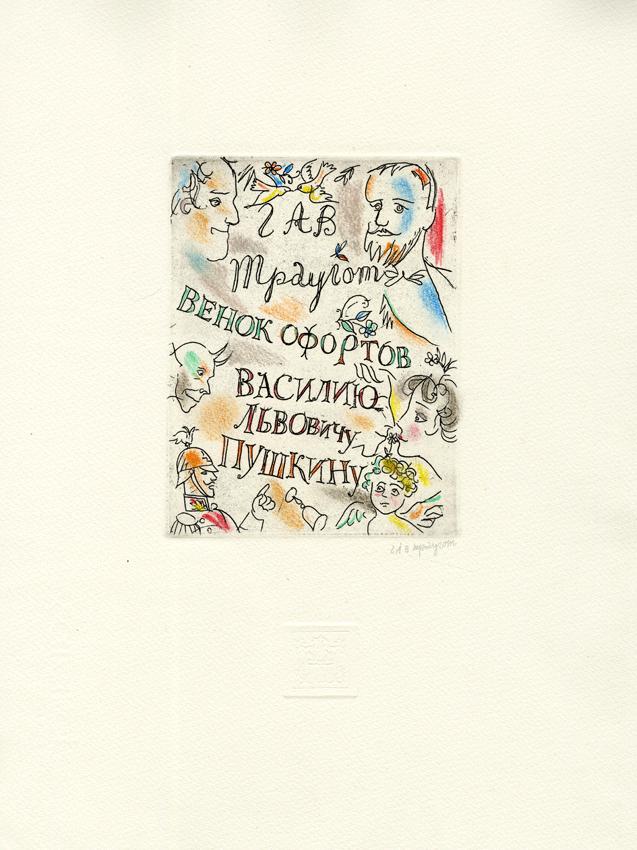 ГАВ
Траугот
ВЕНОК ОФОРТОВ
ВАСИЛИЮ
ЛЬВОВИЧУ
ПУШКИНУ
ГАВ Траугот